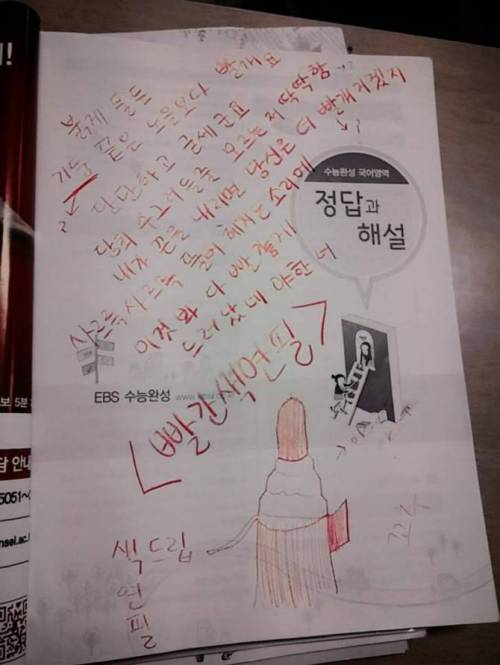 붉게 물든
노을보다 빨개요
기둥 같은
굳세군요
단단하고
오르는 저 딱딱함
당최 수그러들줄
내가 끈을 내리면 당신은 더 빨개지겠지
사르륵 사르륵 몸이 헤치는 소리에
이것 봐 다 빨갛게
드러났네 야한 너
[빨간색연필]
수능완성 국어영역
정답과
해설
EBS 수능완성
색드립
연
필
꼬추
답 안내
5051~
nsei.ac.
보 5분